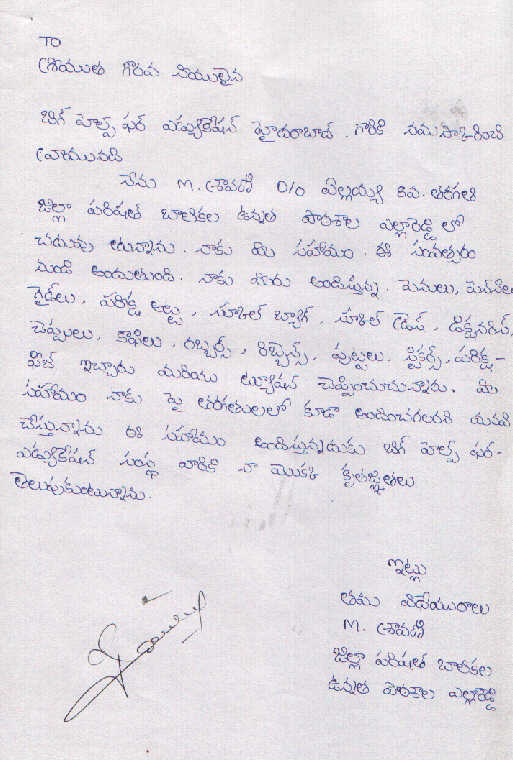 TO
శ్రీయుత గౌరవ నీయులైన
బిగ్ హెల్ప్ ఫర్ ఎడ్యుకేషన్ హైదరాబాద్. గారికి నమస్కరించి
వ్రాయునది
నేను M. శ్రావణి D/o ఎల్లయ్య 6వ. తరగతి
జిల్లా పరిషత్ బాలికల ఉన్నత పాఠశాల ఎల్లారెడ్డి లో
చదువు తున్నాను. నాకు మీ సహాయం. ఈ సంవత్సరం
నుండి అందుతుంది. నాకు మీరు అందిస్తున్న. పెనులు, పెన్సిల్
గైడ్‌లు, పరీక్ష అట్ట, స్కూల్ బ్యాగ్, స్కూల్ డ్రెస్, డిక్షనరీస్,
చెప్పులు, కాపీలు, రబ్బర్స్, రిబ్బెన్స్, పుట్టలు. స్టిక్కర్స్, పరీక్ష-
ఫీజ్ ఇచ్చారు మరియు ట్యూషన్ చెప్పించుచున్నారు. మీ
సహాయం నాకు పై తరగతులలో కూడా అందించగలరని మనవి
చేస్తున్నాను ఈ సహాయం అందిస్తున్నందుకు బిగ్ హెల్ప్ ఫర్-
ఎడ్యుకేషన్ సంస్థ వారికి నా యొక్క కృతజ్ఞతలు
తెలుపుకుంటున్నాను.
ఇట్లు
తమ విధేయురాలు
M. శ్రావణి
జిల్లా పరిషత్ బాలికల
ఉన్నత పాఠశాల ఎల్లారెడ్డి